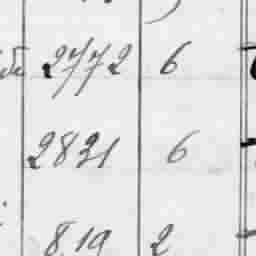 2772 6
2831 6
819 2